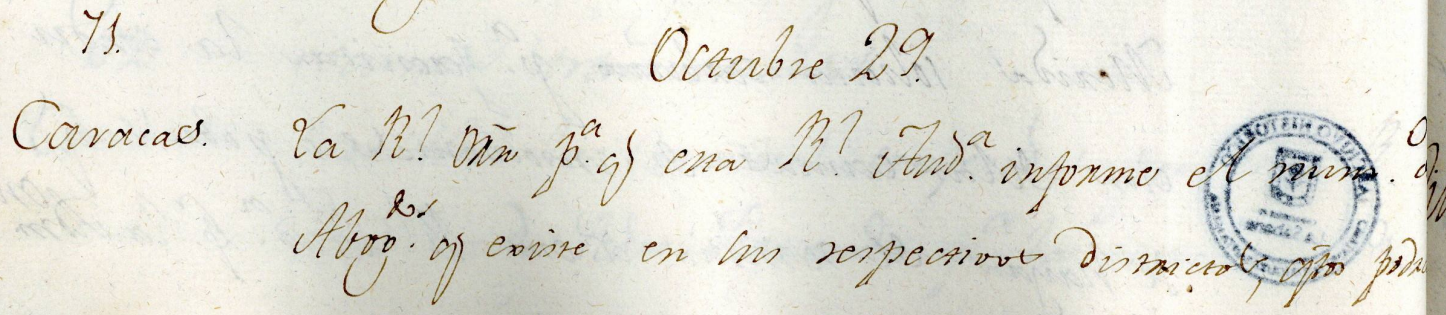 71.
Octubre 29.
Caracas. La Rl. Orñ pa. q esta Rl. Audª. informe el numo. de
Abogdos. q existe en sus respectivos districtos, qtos podr